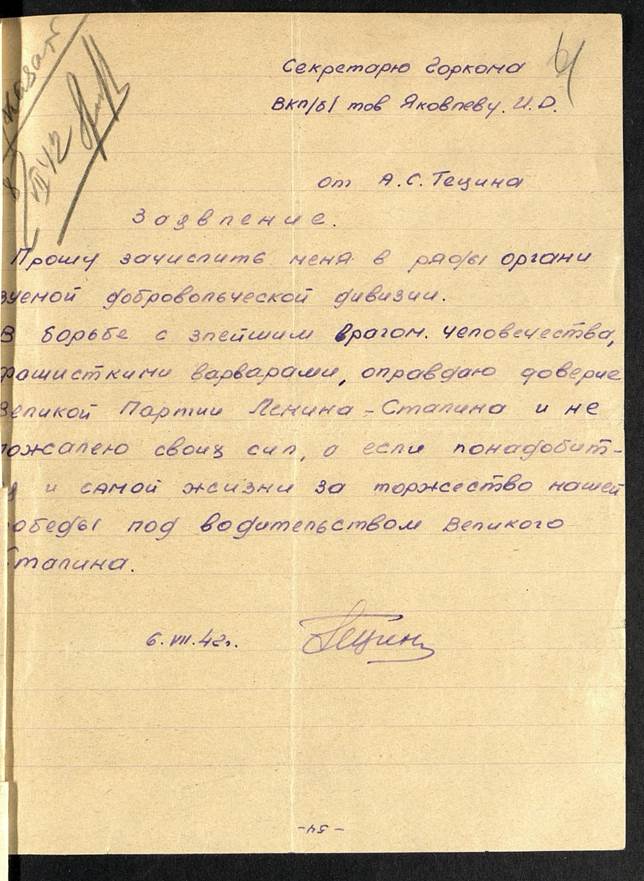 Секретарю Горкома
ВКП/б/ тов Яковлеву. И.Д.
от А.С. Тецина
Заявление.
Прошу зачислить меня в ряды органи
зуемой добровольческой дивизии.
В борьбе с злейшим врагом. человечества,
фашисткими варварами, оправдаю доверие
Великой Партии Ленина-Сталина и не
пожалею своих сил, а если понадобит-
ся и самой жизни за торжество нашей
победы под водительством Великого
Сталина.
6.VII.42г.
Тецин
-54-